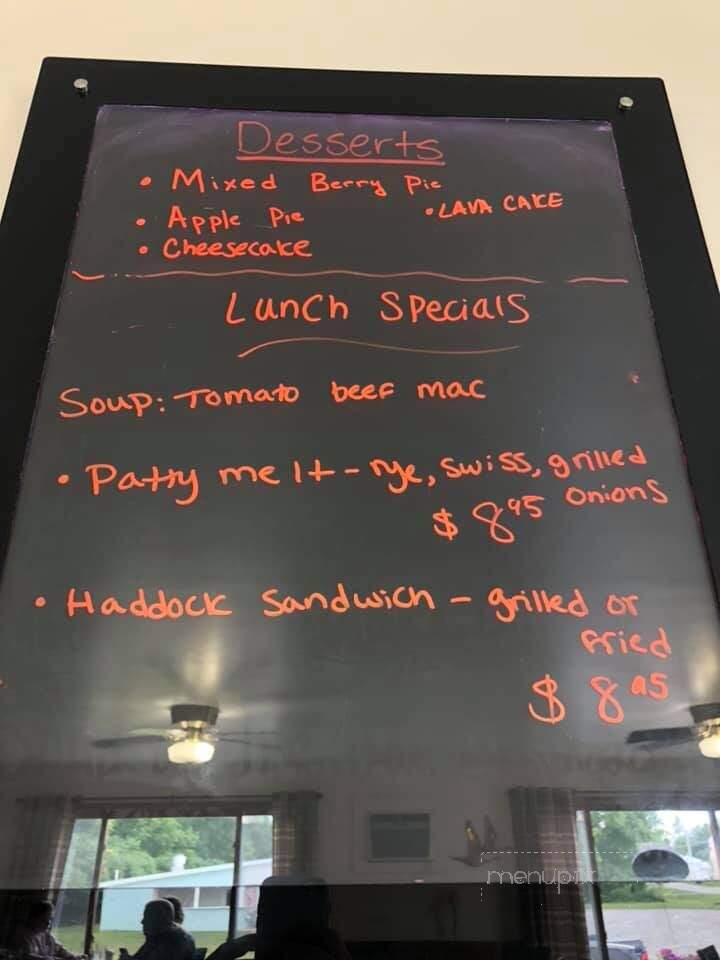 Desserts
• Mixed Berry Pie
• Apple Pie
• LAVA CAKE
• Cheesecake
Lunch Specials
Soup: Tomato beef mac
• Patty melt - rye, swiss, grilled
onions
$ 8.95
• Haddock Sandwich - grilled or
fried
$ 8.95
menupix